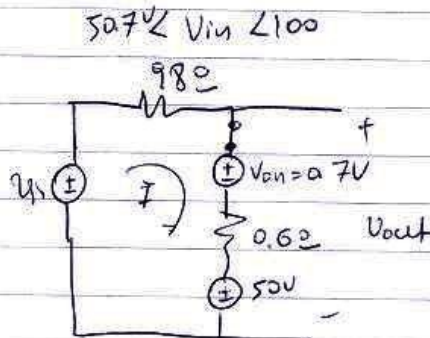 50.7V < Vin < 100
98Ω
+
Von = 0.7V
I
0.6Ω
Vout
50V
-